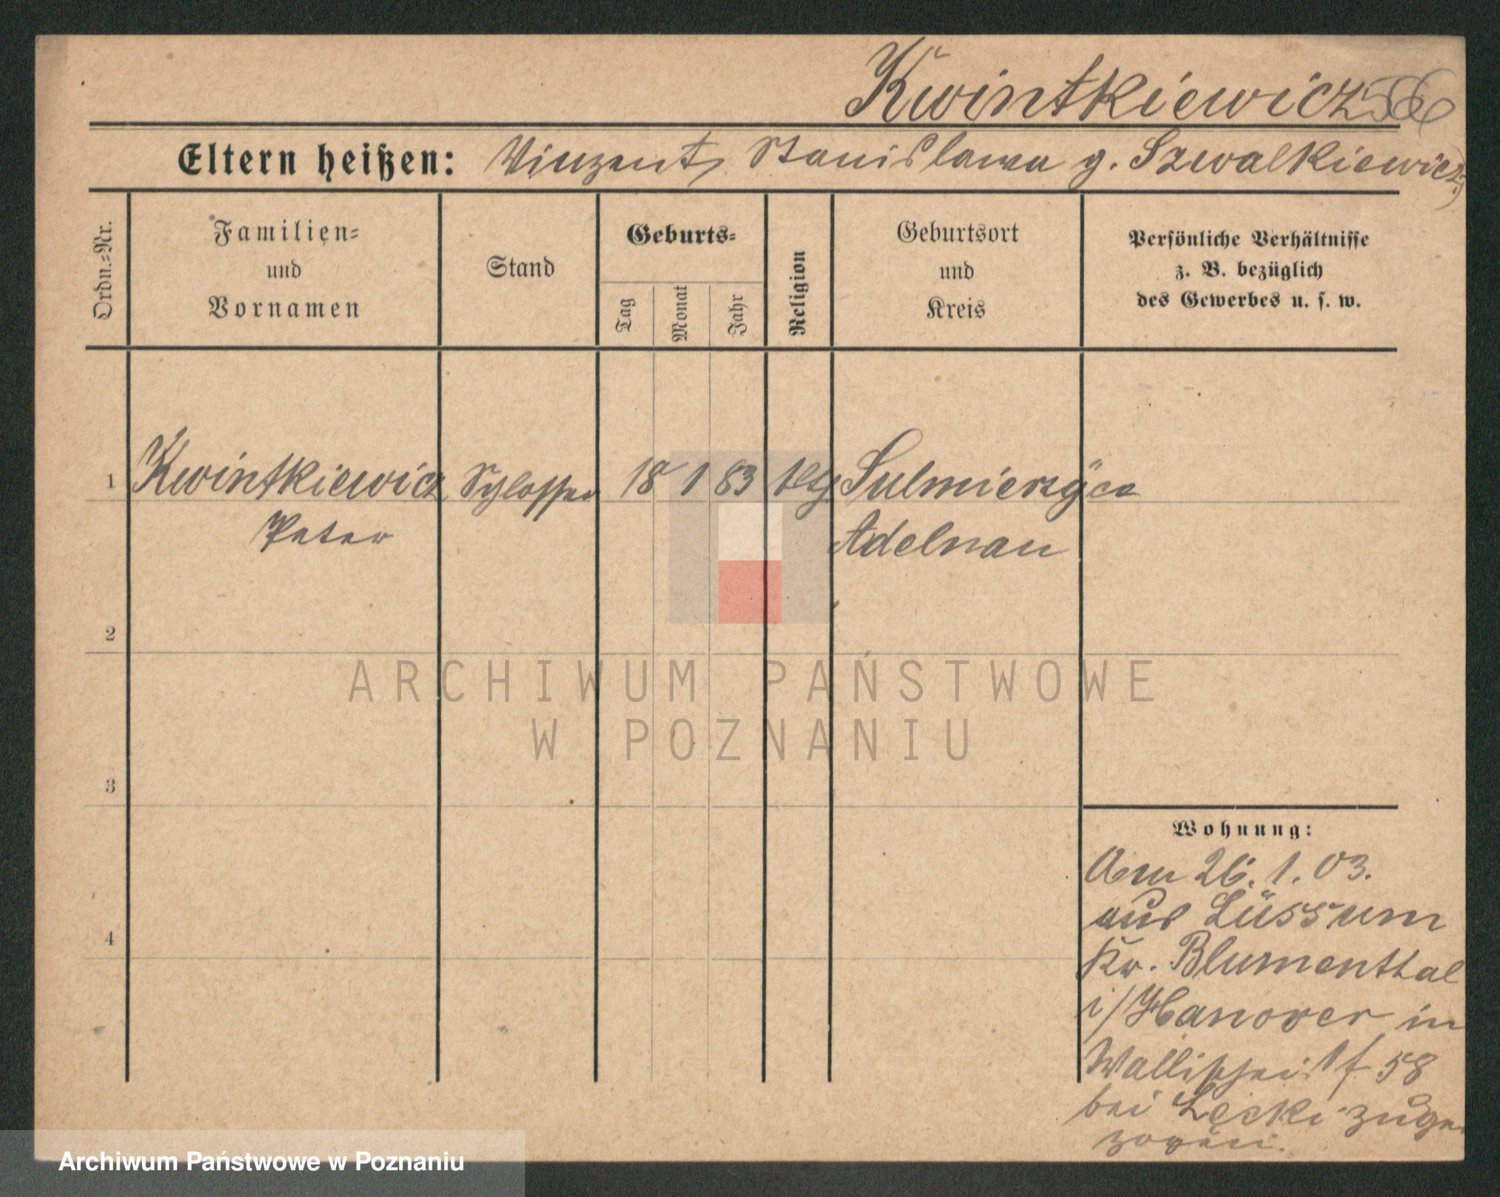 Kwintkiewicz 566
Eltern heißen: Vinzent, Stanislawa g. Szwalkiewicz
Ordn.-Nr.
Familien-
und
Vornamen
Stand
Geburts-
Tag
Monat
Jahr
Religion
Geburtsort
und
Kreis
Persönliche Verhältnisse
z. B. bezüglich
des Gewerbes u. s. w.
1 Kwintkiewicz Schlosser 18 1 83 ktl Sulmierzyce
Peter Adelnau
2
3
4
ARCHIWUM PAŃSTWOWE
W POZNANIU
Wohnung:
Am 26. 1. 03.
aus Lüssum
Kr. Blumenthal
i/Hanover in
Wallischei 58
bei Łęcki zuge-
zogen.
Archiwum Państwowe w Poznaniu